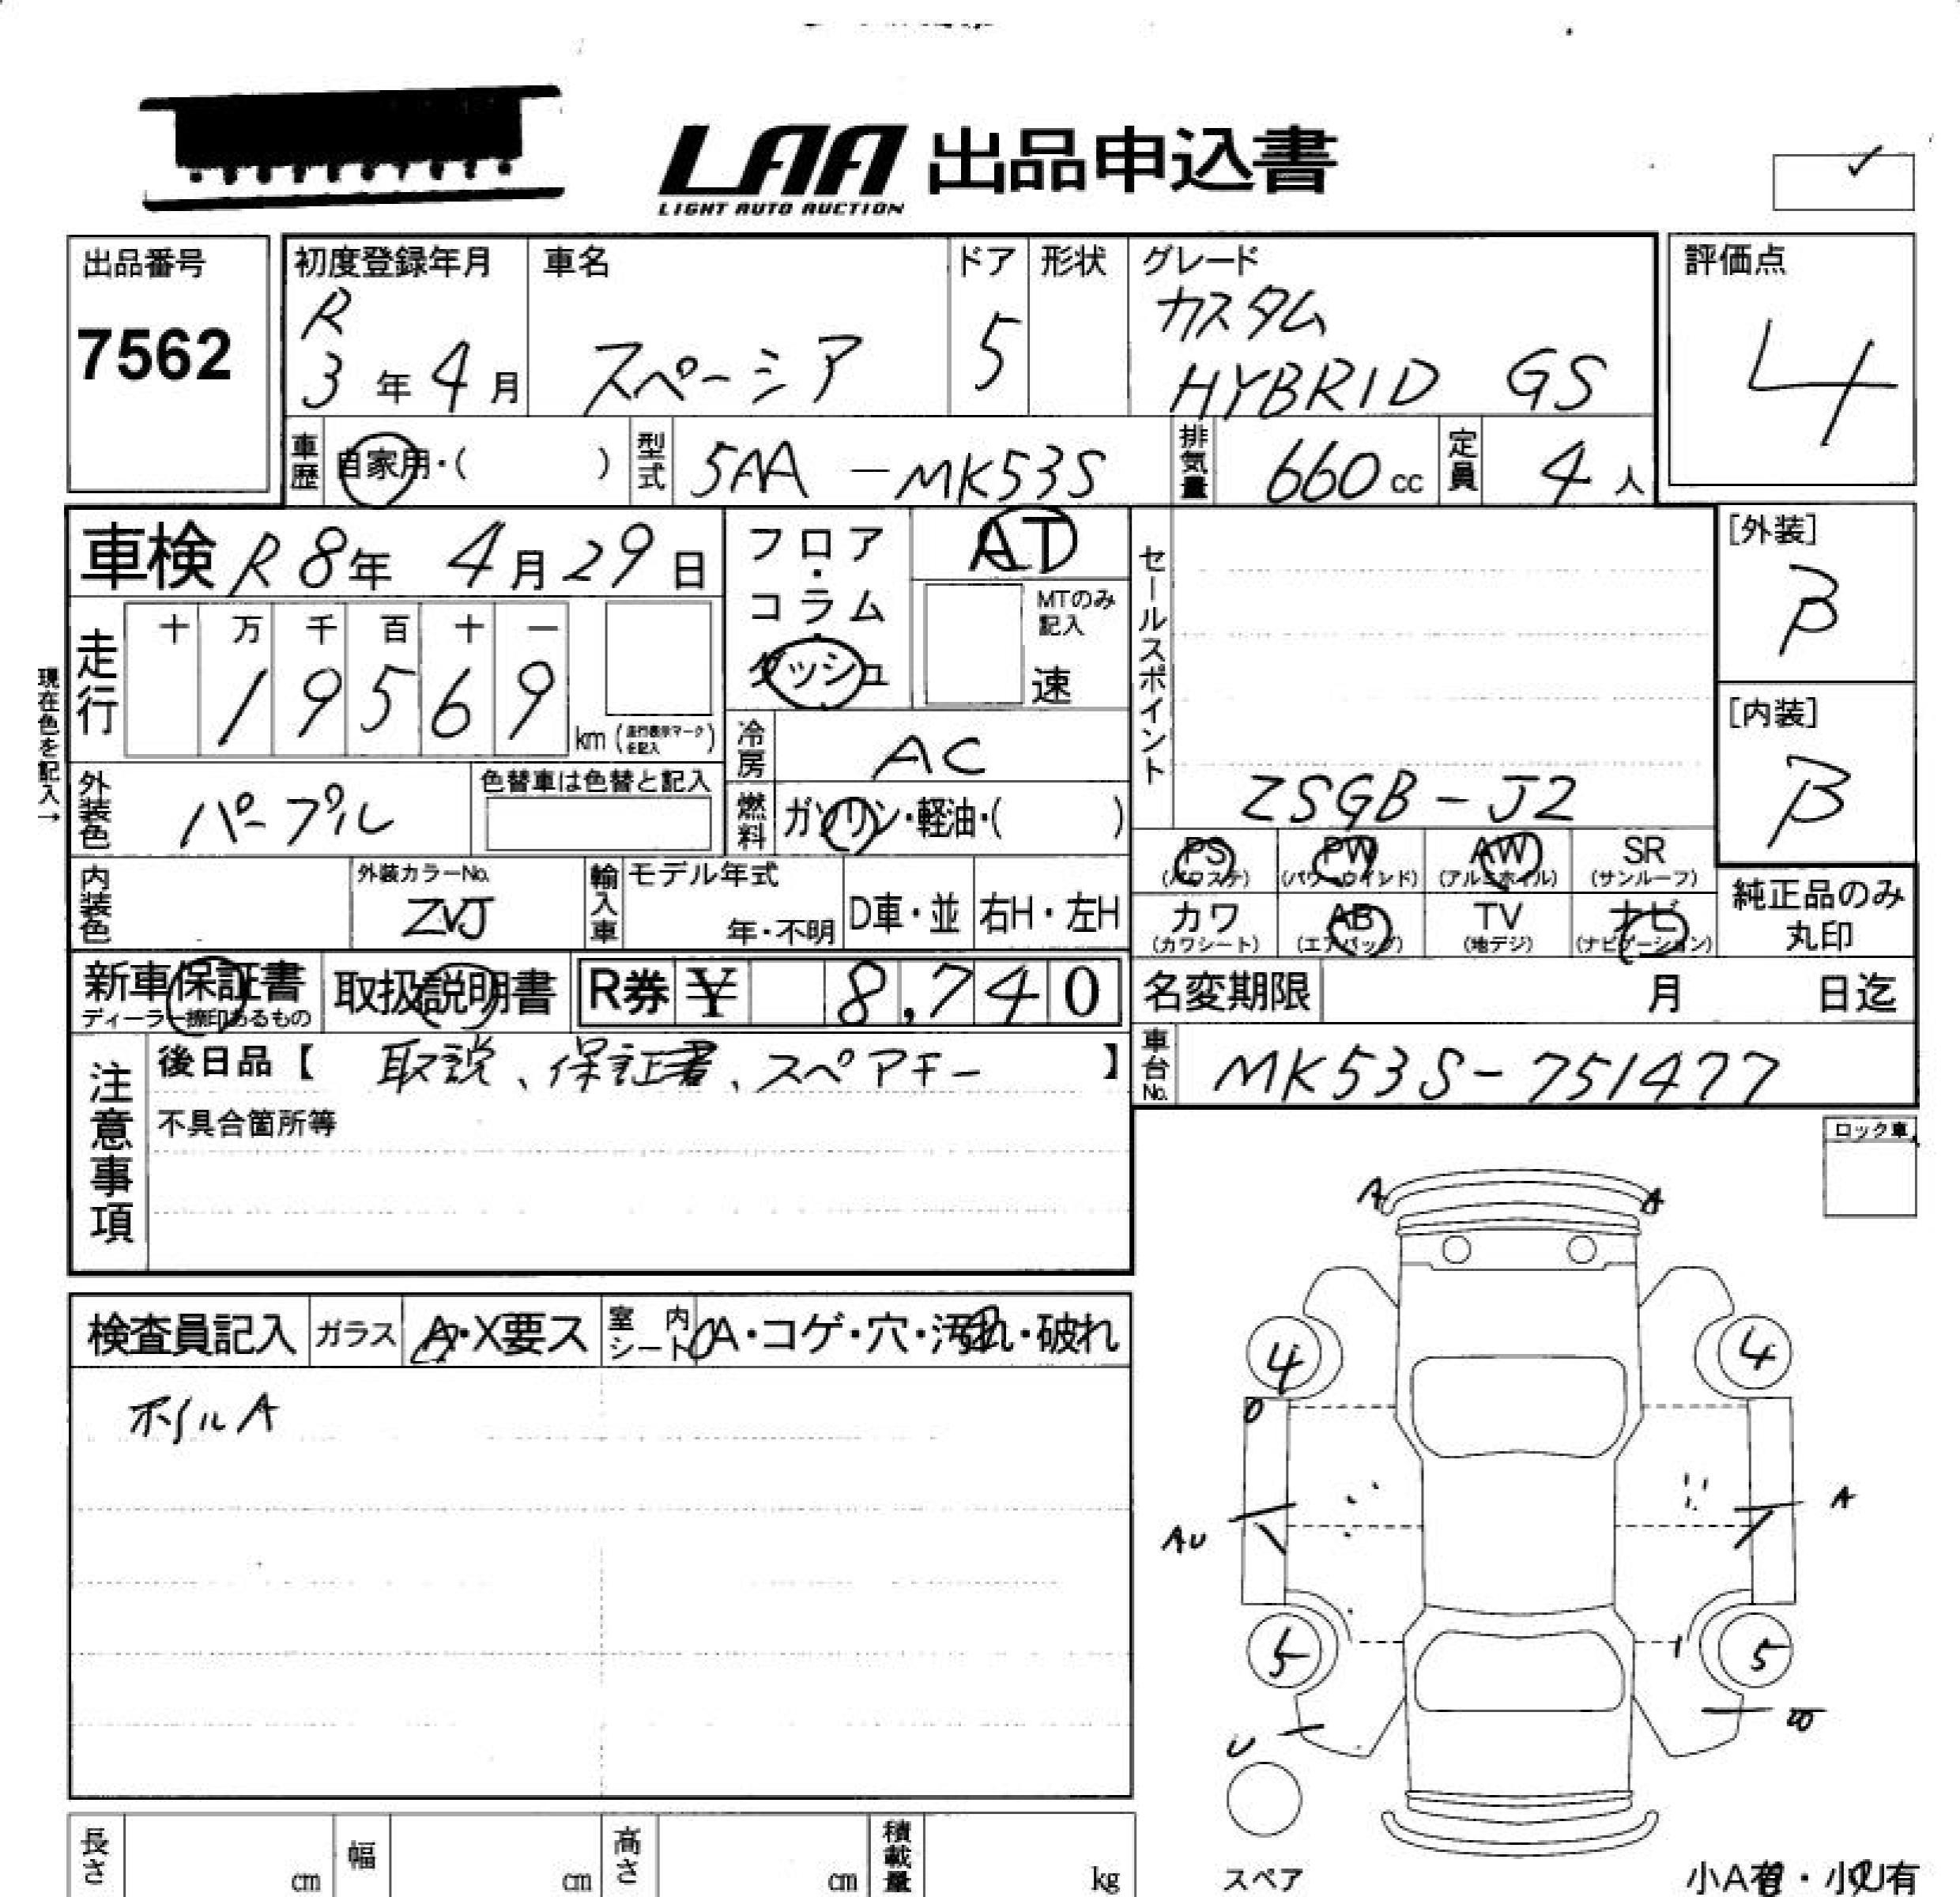 LAA 出品申込書
LIGHT AUTO AUCTION
出品番号
7562
初度登録年月
R
3年4月
車名
スペーシア
ドア
5
形状
グレード
カスタム
HYBRID GS
評価点
4
車歴 自家用・( )
型式 5AA-MK53S
排気量 660cc
定員 4人
車検 R8年 4月29日
フロア・コラム・ダッシュ
AT
MTのみ記入
速
セールスポイント
ZSGB-J2
[外装]
B
[内装]
B
現在色を記入→
走行
十 万 千 百 十 一
1 9 5 6 9 km (走行表示マークを記入)
冷房 AC
燃料 ガソリン・軽油・( )
外装色 パープル
色替車は色替と記入
内装色
外装カラーNo.
ZVJ
輸入車
モデル年式
年・不明
D車・並
右H・左H
PS (パワステ)
PW (パワーウインド)
AW (アルミホイル)
SR (サンルーフ)
カワ (カワシート)
AB (エアバッグ)
TV (地デジ)
ナビ (ナビゲーション)
純正品のみ丸印
新車保証書
ディーラー捺印あるもの
取扱説明書
R券 ¥ 8,740
名変期限 月 日迄
注意事項
後日品【 取説、保証書、スペアキー 】
不具合箇所等
車台No. MK53S-751477
ロック車
検査員記入
ガラス A・X要ス
室内シート A・コゲ・穴・汚れ・破れ
ホイルA
A A
4 4
AU A
5 5
U
スペア
長さ cm
幅 cm
高さ cm
積載量 kg
小A有・小U有